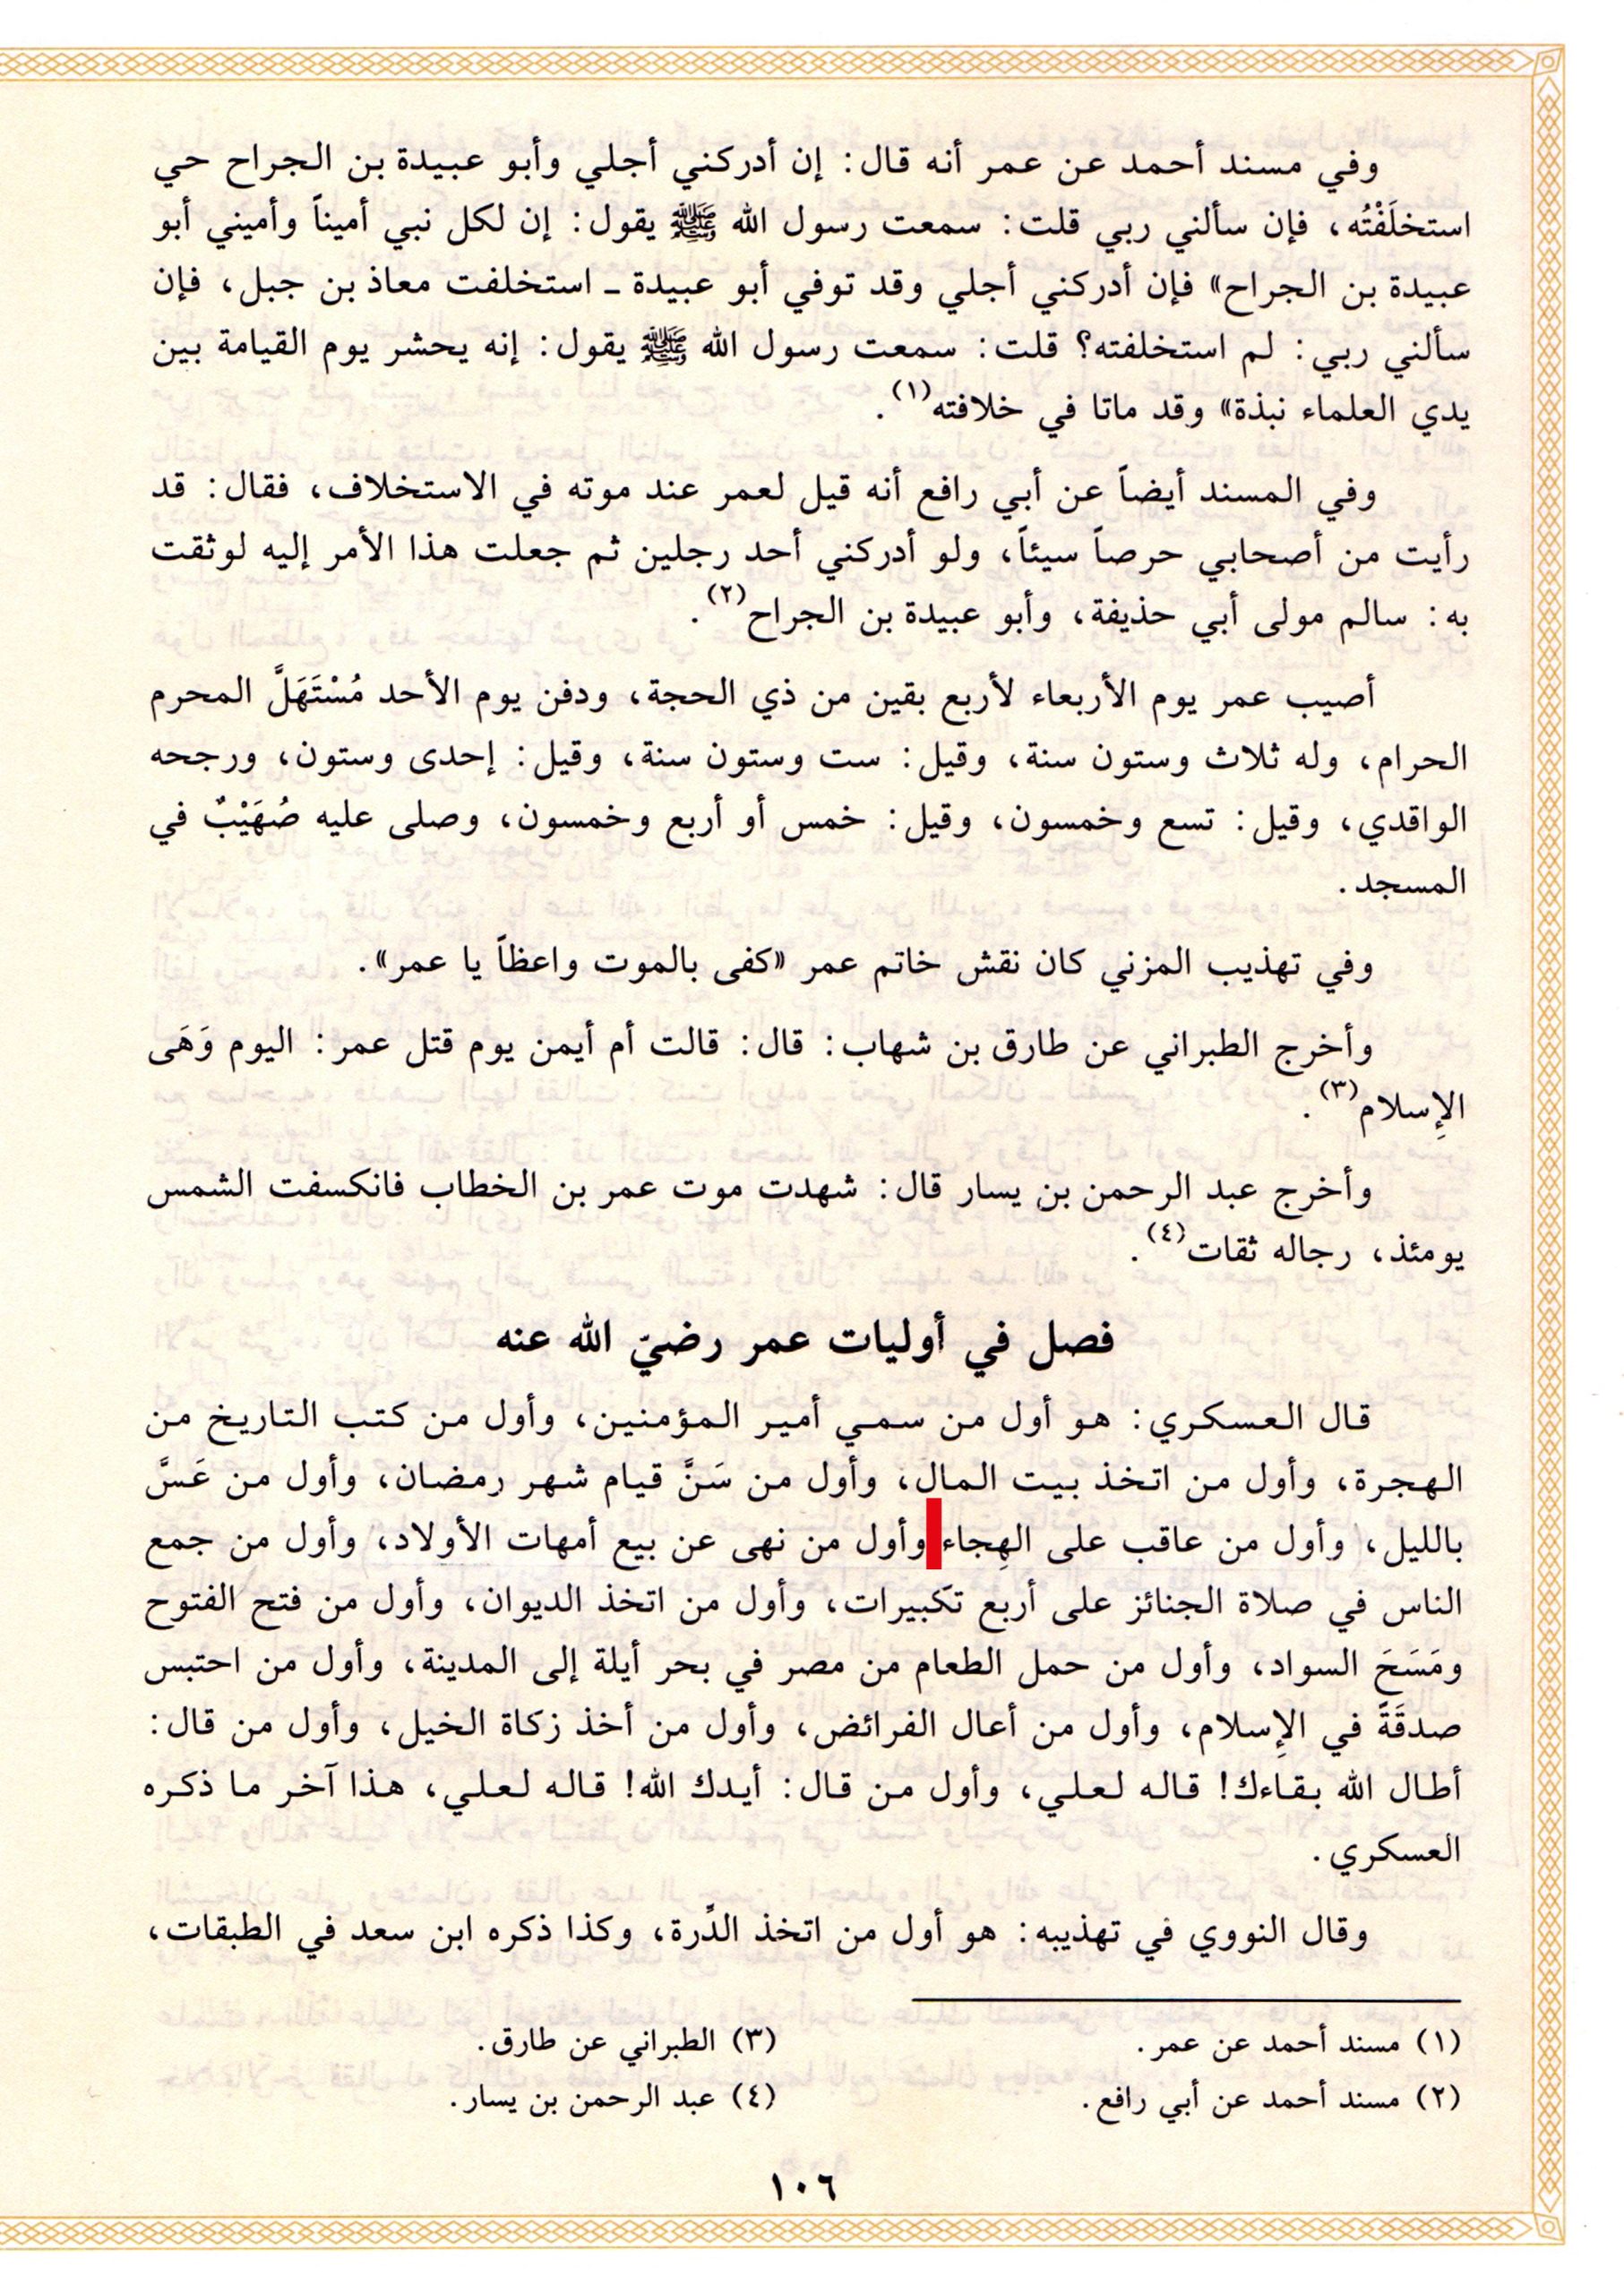 وفي مسند أحمد عن عمر أنه قال: إن أدركني أجلي وأبو عبيدة بن الجراح حي
استخلَفْتُه، فإن سألني ربي قلت: سمعت رسول الله ﷺ يقول: إن لكل نبي أميناً وأميني أبو
عبيدة بن الجراح» فإن أدركني أجلي وقد توفي أبو عبيدة ـ استخلفت معاذ بن جبل، فإن
سألني ربي: لم استخلفته؟ قلت: سمعت رسول الله ﷺ يقول: إنه يحشر يوم القيامة بين
يدي العلماء نبذة» وقد ماتا في خلافته(١).
وفي المسند أيضاً عن أبي رافع أنه قيل لعمر عند موته في الاستخلاف، فقال: قد
رأيت من أصحابي حرصاً سيئاً، ولو أدركني أحد رجلين ثم جعلت هذا الأمر إليه لوثقت
به: سالم مولى أبي حذيفة، وأبو عبيدة بن الجراح(٢).
أصيب عمر يوم الأربعاء لأربع بقين من ذي الحجة، ودفن يوم الأحد مُسْتَهَلَّ المحرم
الحرام، وله ثلاث وستون سنة، وقيل: ست وستون سنة، وقيل: إحدى وستون، ورجحه
الواقدي، وقيل: تسع وخمسون، وقيل: خمس أو أربع وخمسون، وصلى عليه صُهَيْبٌ في
المسجد.
وفي تهذيب المزني كان نقش خاتم عمر «كفى بالموت واعظاً يا عمر».
وأخرج الطبراني عن طارق بن شهاب: قال: قالت أم أيمن يوم قتل عمر: اليوم وَهَى
الإِسلام(٣).
وأخرج عبد الرحمن بن يسار قال: شهدت موت عمر بن الخطاب فانكسفت الشمس
يومئذ، رجاله ثقات(٤).
فصل في أوليات عمر رضيَ الله عنه
قال العسكري: هو أول من سمي أمير المؤمنين، وأول من كتب التاريخ من
الهجرة، وأول من اتخذ بيت المال، وأول من سَنَّ قيام شهر رمضان، وأول من عَسَّ
بالليل، وأول من عاقب على الهِجاء وأول من نهى عن بيع أمهات الأولاد، وأول من جمع
الناس في صلاة الجنائز على أربع تكبيرات، وأول من اتخذ الديوان، وأول من فتح الفتوح
ومَسَحَ السواد، وأول من حمل الطعام من مصر في بحر أيلة إلى المدينة، وأول من احتبس
صدقَةً في الإِسلام، وأول من أعال الفرائض، وأول من أخذ زكاة الخيل، وأول من قال:
أطال الله بقاءك! قاله لعلي، وأول من قال: أيدك الله! قاله لعلي، هذا آخر ما ذكره
العسكري.
وقال النووي في تهذيبه: هو أول من اتخذ الدِّرة، وكذا ذكره ابن سعد في الطبقات،
(١) مسند أحمد عن عمر.
(٢) مسند أحمد عن أبي رافع.
(٣) الطبراني عن طارق.
(٤) عبد الرحمن بن يسار.
١٠٦